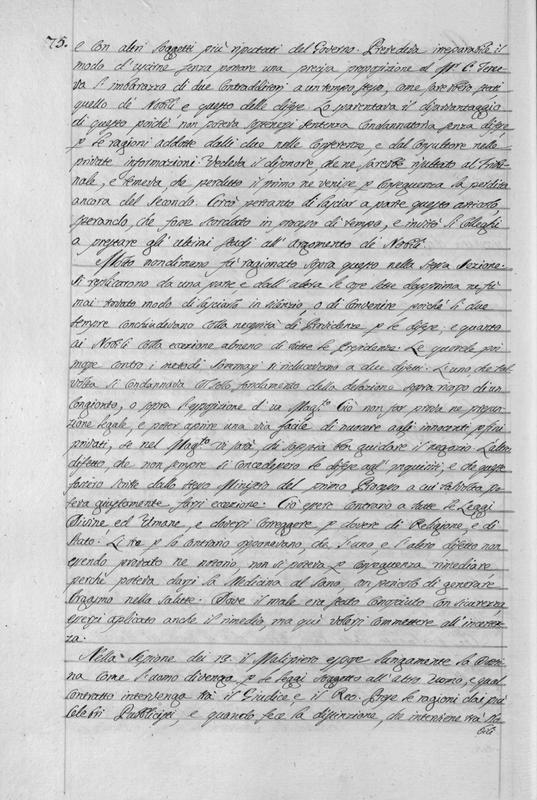 75.
e con altri Soggetti più riputati del Governo. Prevedeva inseparabile il
modo d'uscirne senza portare una precisa proposizione al M. C. Tene-
va l'imbarazzo di due Contradditioni a un tempo stesso, come sarebbero state
quella de' Nobili e questa delle difese. Lo spaventava il disavvantaggio
di questo poiché non poteva sostenersi sentenza Condannatoria senza difese
p le ragioni addotte dalli due nelle Conferenze, e dal Consultore nelle
private informazioni. Vedeva il disonore, che ne sarebbe risultato al Tribu-
nale, e temeva che perduto il primo ne venisse p conseguenza la perdita
ancora del Secondo. Cercò pertanto di lasciar a parte questo articolo,
sperando, che fosse scordato in processo di tempo, e invitò li Colleghi
a prestare gli ultimi studj all'argomento de' Nobili.
Molto nondimeno fù ragionato sopra questo nella stessa Sezione.
Si replicarono da una parte e dall'altra le cose dette dapprima ne fù
mai trovato modo di lasciarlo in silenzio, o di convenire perchè li due
sempre conchiudevano colla necessità di Providenza p le difese; e quanto
ai Nobili colla eccezione almeno di tutte le Presidenze. Le querele poi
mosse contro i metodi si riducevano a due difetti. L'uno, che tal-
volta si Condannava sul solo fondamento della delazione sopra riposo di un
Congionto, o sopra l'esposizione d'un Mag.to Ciò non far prova ne prepara-
zione legale, e poter aprire una via facile di nuocere agli innocenti p fini
privati, se nel Mag.to vi sarà, chi sappia ben guidare il negozio. L'altro
difetto, che non sempre si concedessero le difese agl'inquisiti; e che queste
fossero scritte dallo stesso Ministro del primo Processo a cui talvolta po-
teva giustamente farsi eccezione. Ciò essere contrario a tutte le Leggi
Divine, ed Umane, e doversi correggere p dovere di Religione, e di
Stato. Li tre p lo contrario opponevano, che l'uno, e l'altro difetto non
essendo provato ne notorio, non si poteva p Conseguenza rimediare
perchè poteva darsi la Medicina al Sano, con pericolo di generare
l'orgasmo nella Salute. Dove il male era stato conosciuto con sicurezza
essersi applicato anche il rimedio, ma qui volersi commettere all'incertez-
za.
Nella Sezione dei 19. il Malipiero espose lungamente la Dottri-
na come l'uomo divenga p le leggi soggetto all'altro Uomo, e qual
Contratto intervenga trà il Giudice e il Reo. Prese le ragioni dai più
Celebri Pubblicisti, e quando fece la distinzione, che interviene trà No-
bili